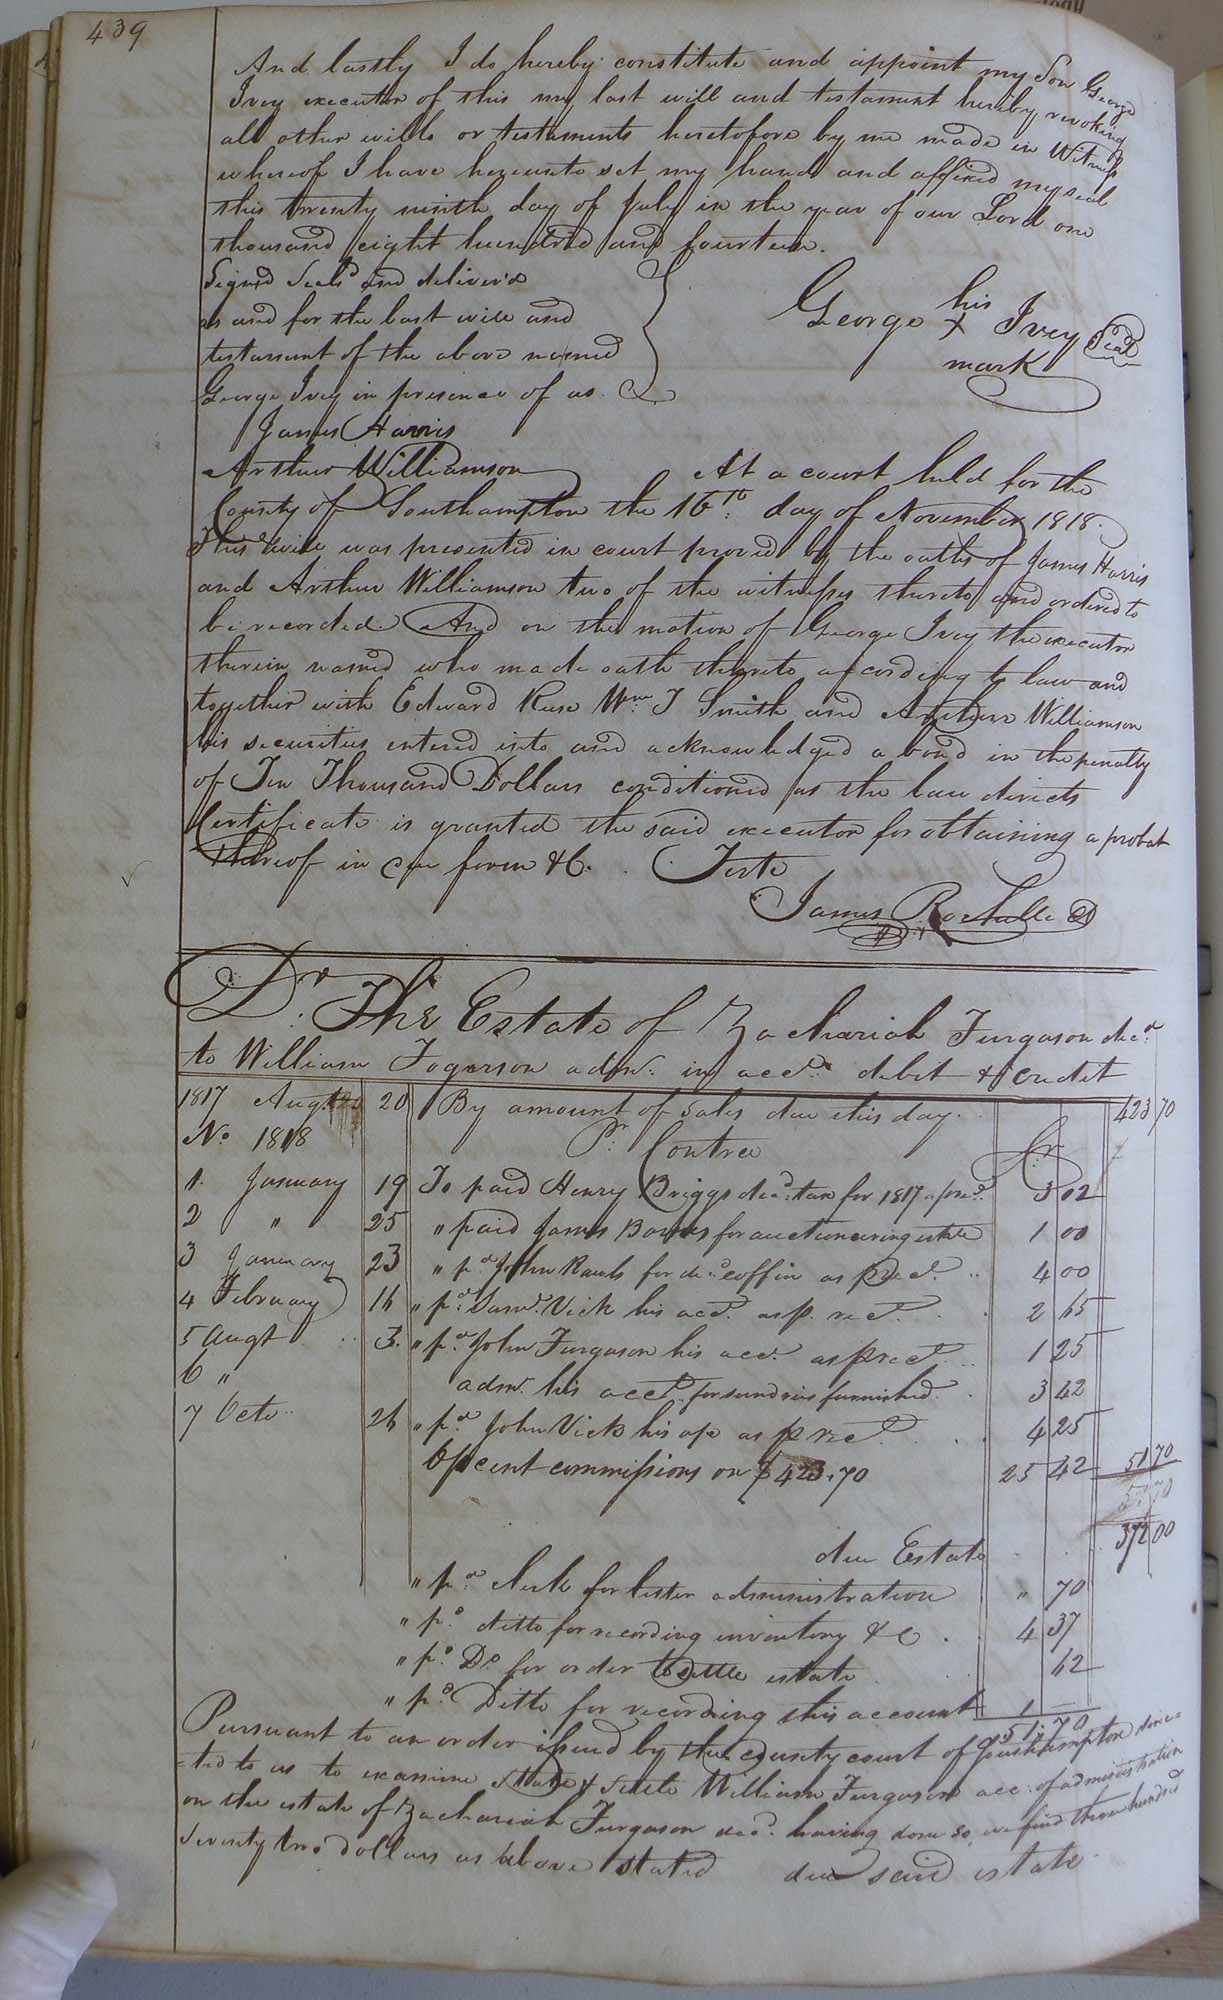 439
And lastly I do hereby constitute and appoint my Son George
Ivey executor of this my last will and testament hereby revoking
all other wills or testaments heretofore by me made in Witness
whereof I have hereunto set my hand and affixed my seal
this twenty ninth day of July in the year of our Lord one
thousand eight hundred and fourteen.
Signed Seald and deliver'd
as and for the last will and
testament of the above named
George Ivey in presence of us
his
George + Ivey Seal
mark
James Harris
Arthur Williamson
At a court held for the
County of Southampton the 16th day of November 1818.
This will was presented in court proved by the oaths of James Harris
and Arthur Williamson two of the witnesses thereto and ordered to
be recorded. And on the motion of George Ivey the executor
therein named who made oath thereto according to law and
together with Edward Reese Wm J Smith and Arthur Williamson
his securities entered into and acknowledged a bond in the penalty
of Ten Thousand Dollars conditioned as the law directs
Certificate is granted the said executor for obtaining a probat
thereof in due form &C. Teste
James Rochelle
Dr. The Estate of Zachariah Furgason decd
to William Fogerson admr. in acct. debit & Credit
1817 Augt 20 By amount of Sales due this day. 423 70
No 1818 Pr Contra Cr
1. January 19 To paid Henry Briggs decd. tax for 1817 3 02
2 " 25 " paid James Barnes for auctioneering estate 1 00
3 January 23 " pd John Rawls for decd coffin as pr rect. 4 00
4 February 14 " pd Saml. Vick his acct. as p. rect. 2 45
5 Augt 3. " pd John Furgason his acct. as pr rect. 1 25
6 " admr. his acct. for sundries furnished. 3 42
7 Octo 24 " pd John Vick his a/c as p rect 4 25
6 pcent commissions on $423.70 25 42 51 70
372 00
due Estate
" pd clerk for letter administration " 70
" pd ditto for recording inventory &C. 4 37
" pd Do for order to settle estate 42
" pd Ditto for recording this account 1 —
51.70
Pursuant to an order issued by the county court of Southampton direc=
=ted to us to examine State & Settle William Furgason acc: of administration
on the estate of Zachariah Furgason decd. having done so, we find three hundred
Seventy two dollars as above stated due said estate.